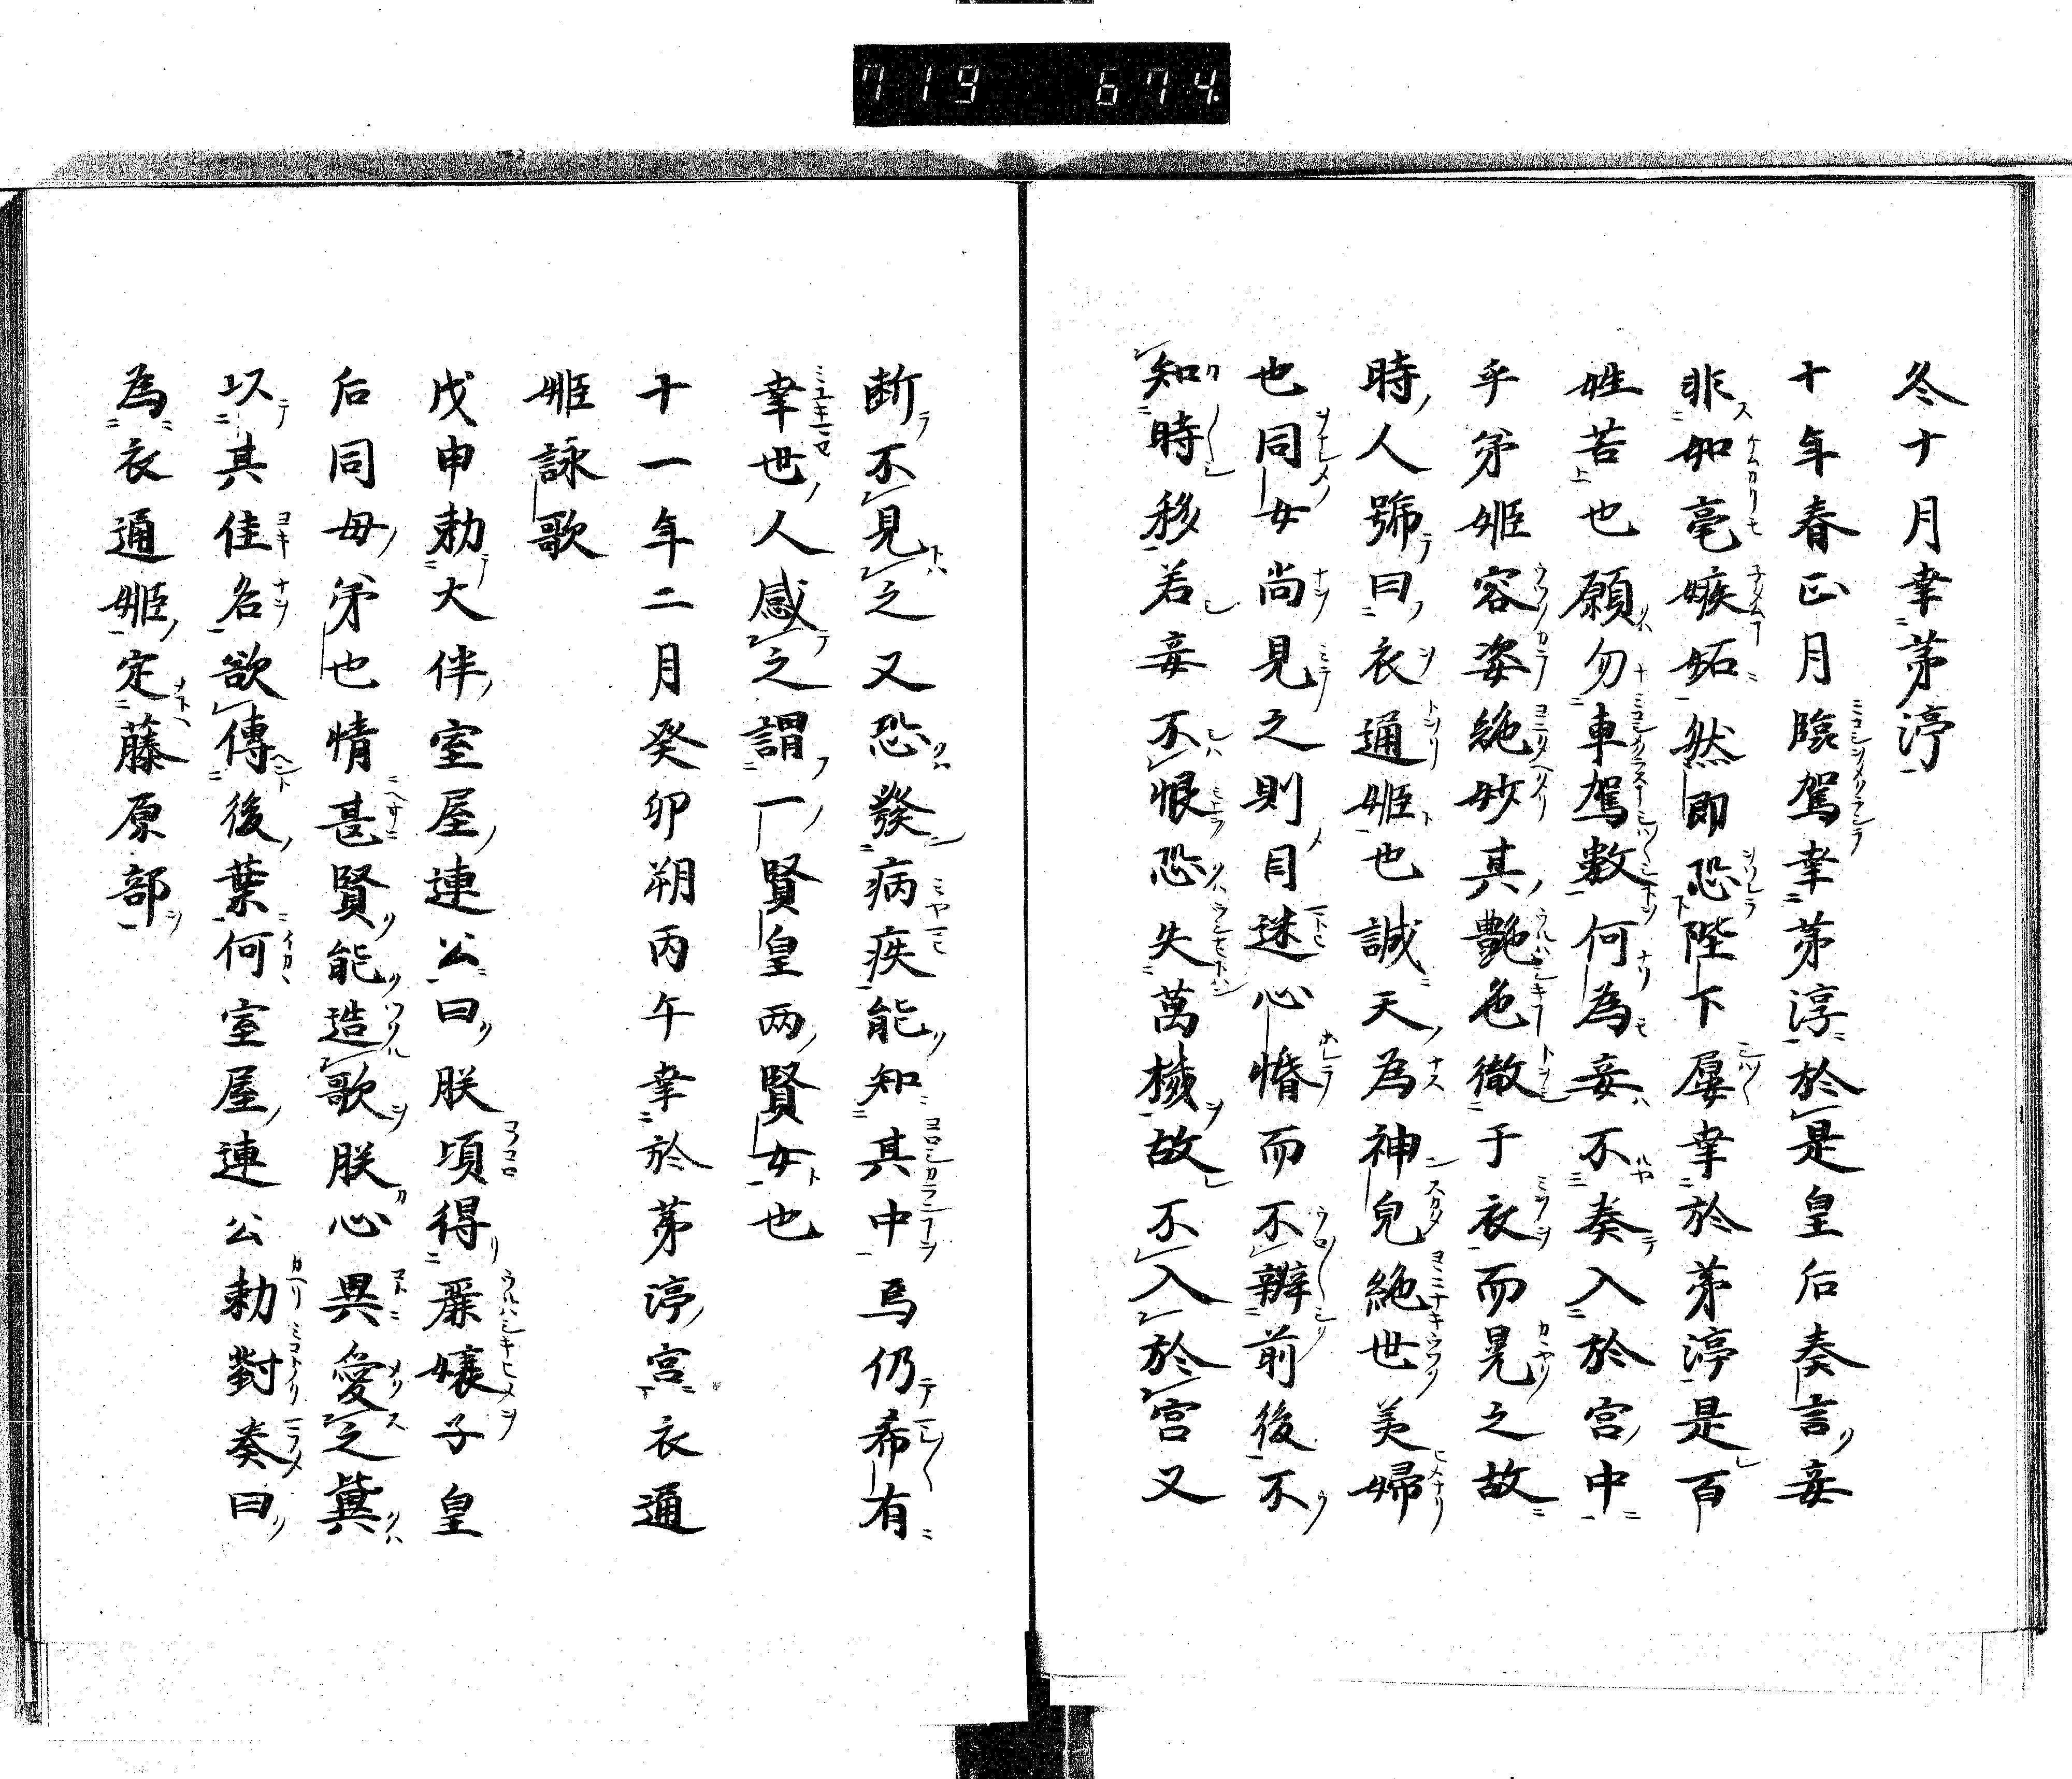 719 674.
冬十月幸茅渟
十年春正月臨駕幸茅渟於是皇后奏言妾
非如毫嫉妬然即恐陛下屢幸於茅渟是百
姓苦也願勿車駕數何為妾不奏入於宮中
乎弟姬容姿絶妙其艷色徹于衣而晃之故
時人號曰衣通姬也誠天為神皃絶世美婦
也同女尚見之則目迷心惛而不辨前後不
知時移若妾不恨恐失萬機故不入於宮又
断不見之又恐發病疾能知其中焉仍希有
幸世人感之謂一賢皇兩賢女也
十一年二月癸卯朔丙午幸於茅渟宮衣通
姬詠歌
戊申勅大伴室屋連公曰朕頃得麗孃子皇
后同毋弟也情甚賢能造歌朕心異愛之冀
以其佳名欲傳後葉何室屋連公勅對奏曰
為衣通姬定藤原部